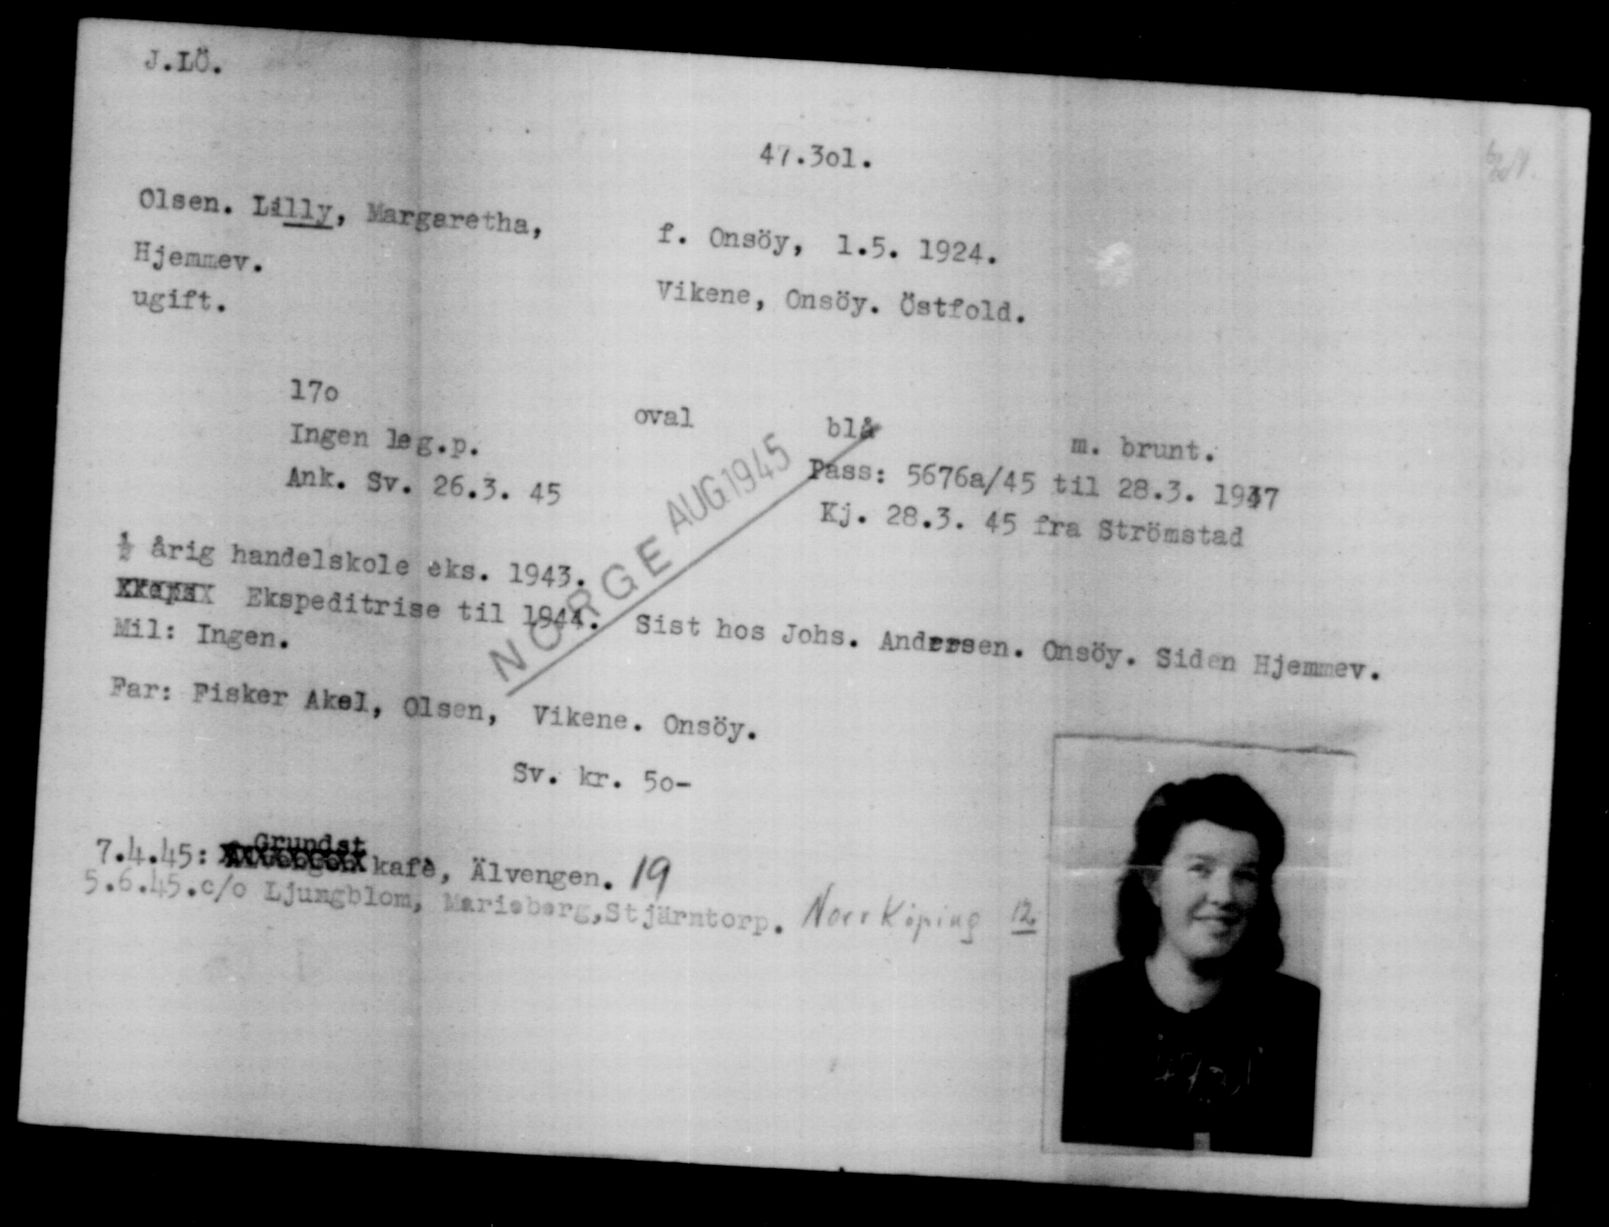 J.LÖ.
47.3o1.
Olsen. Lilly, Margaretha,
f. Onsöy, 1.5. 1924.
Hjemmev.
Vikene, Onsöy. Östfold.
ugift.
17o
oval
blå
m. brunt.
Ingen leg.p.
Pass: 5676a/45 til 28.3. 1947
Ank. Sv. 26.3. 45
Kj. 28.3. 45 fra Strömstad
NORGE AUG 1945
½ årig handelskole eks. 1943.
Ekspeditrise til 1944. Sist hos Johs. Andersen. Onsöy. Siden Hjemmev.
Mil: Ingen.
Far: Fisker Akel, Olsen, Vikene. Onsöy.
Sv. kr. 5o-
Grundst
7.4.45: kafè, Älvengen. 19
5.6.45.c/o Ljungblom, Marieberg,Stjärntorp. Norrköping 12.